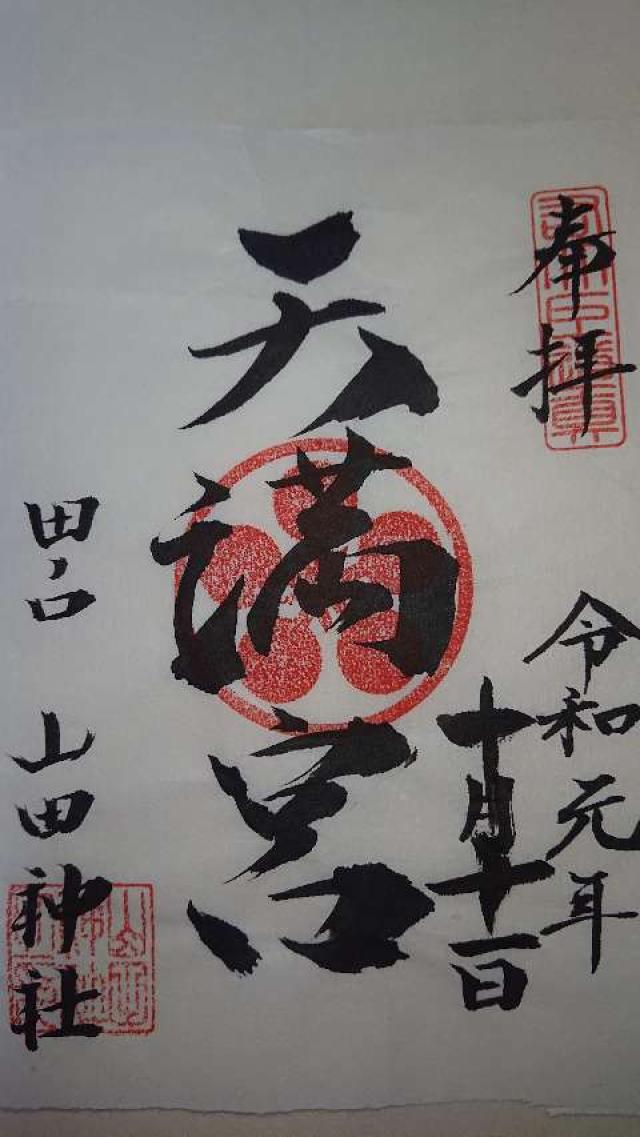 奉拝
令和元年
十月十一日
天満宮
田ノ口
山田神社